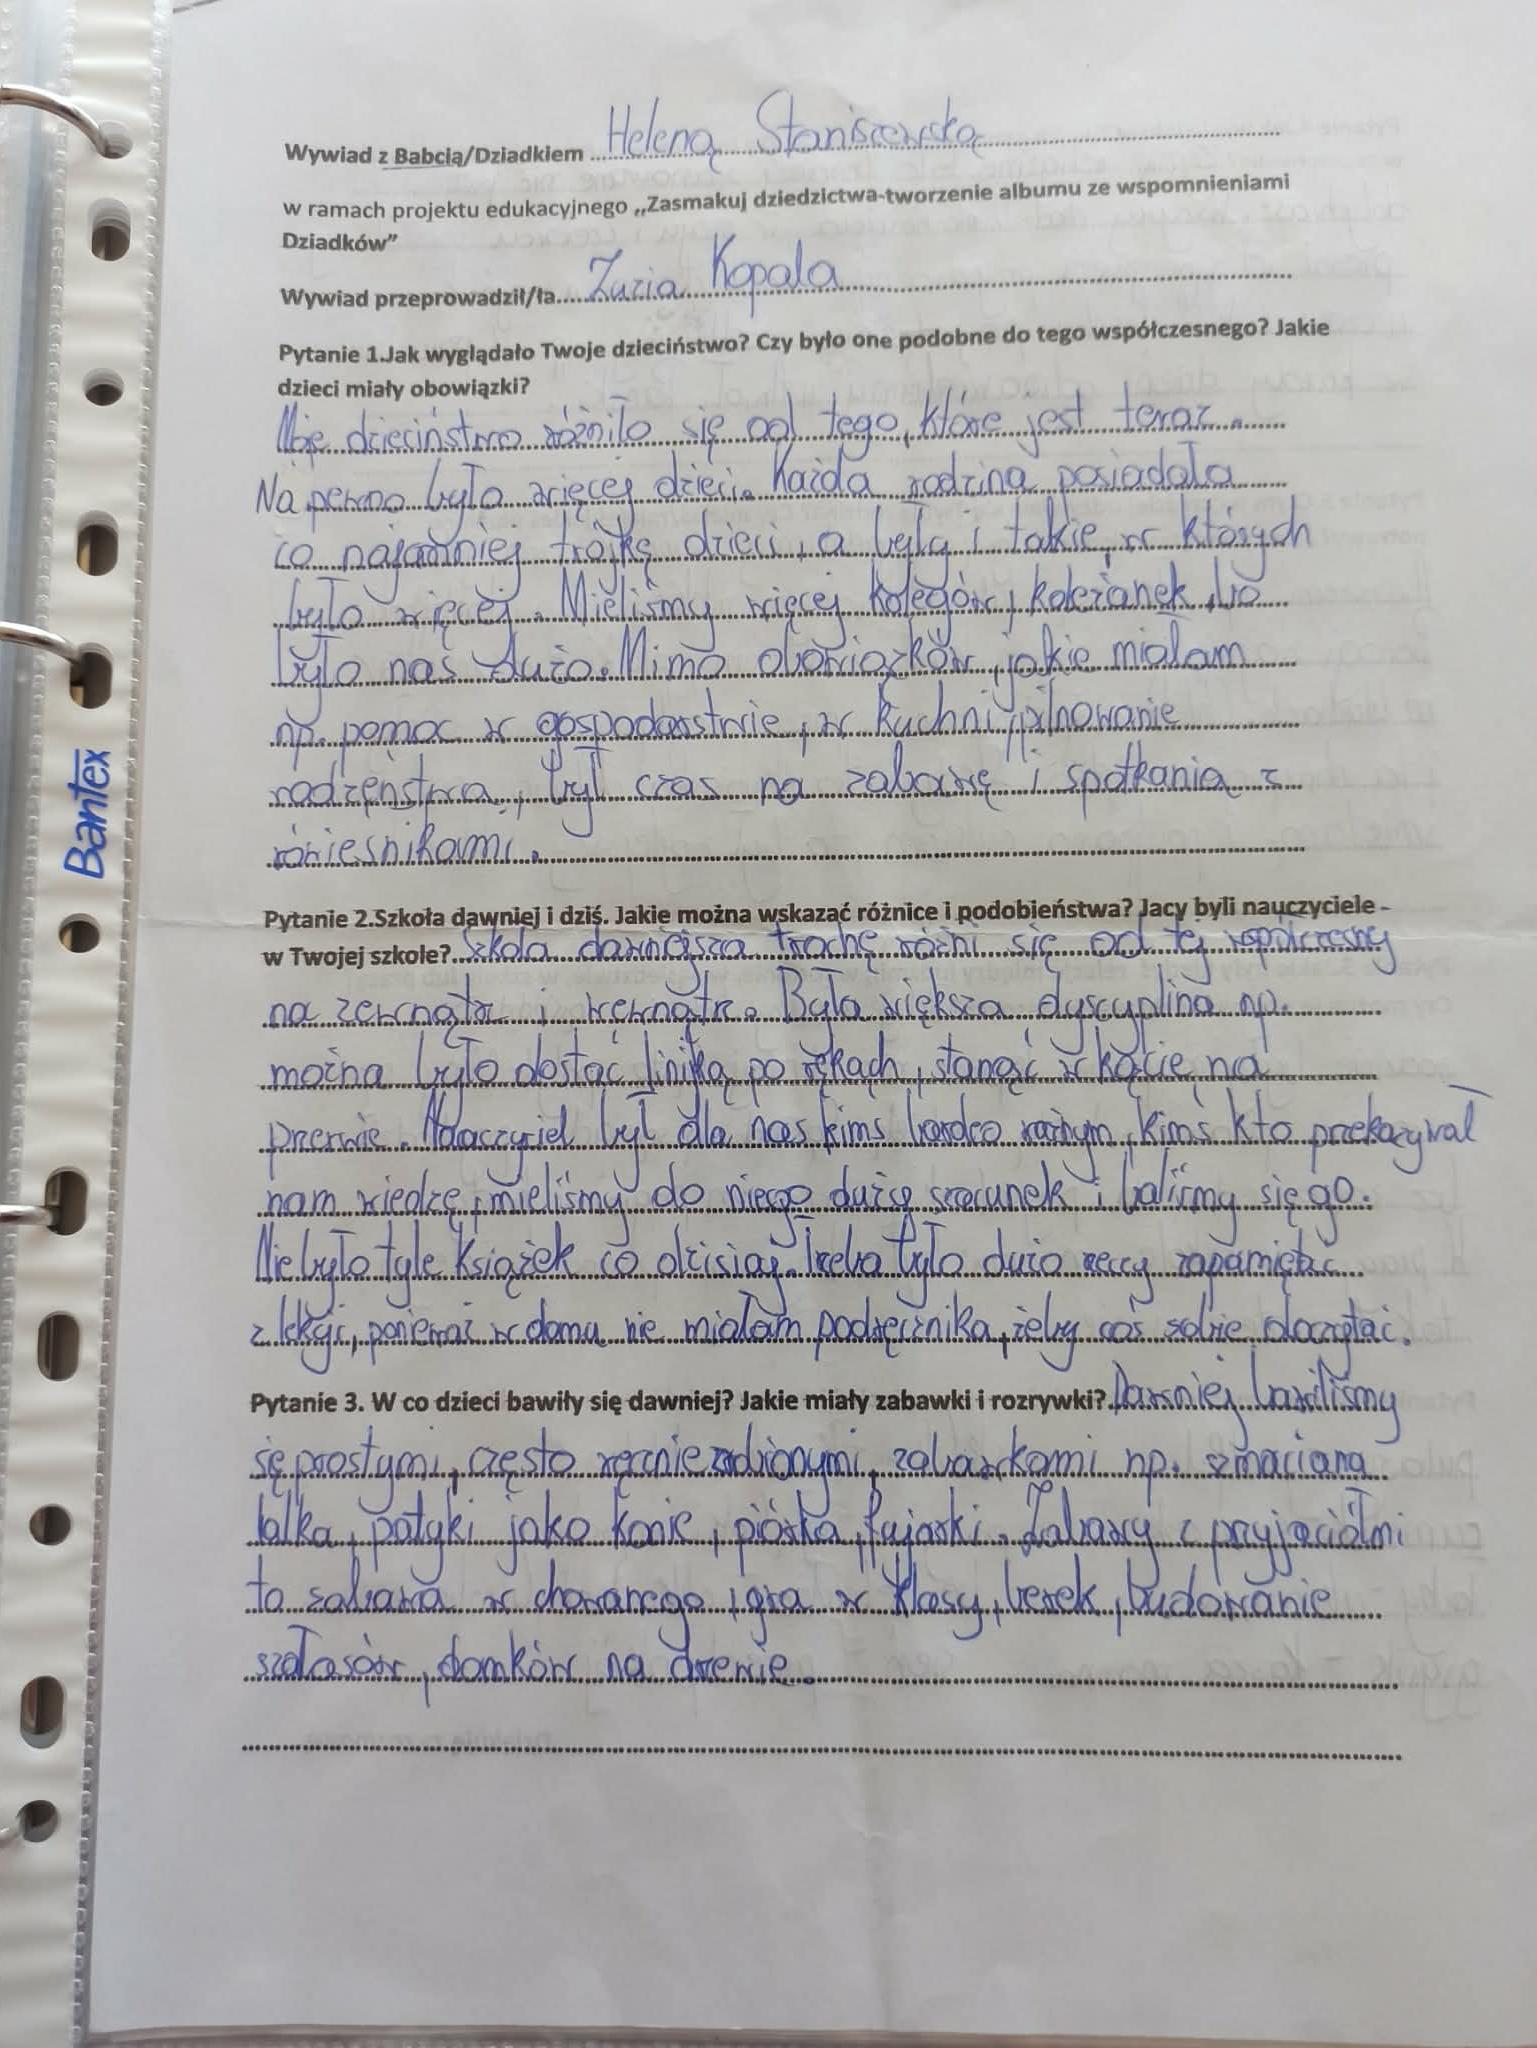 Wywiad z Babcią/Dziadkiem Heleną Staniszewską
w ramach projektu edukacyjnego „Zasmakuj dziedzictwa-tworzenie albumu ze wspomnieniami
Dziadków”
Wywiad przeprowadził/ła Zuzia Kopala
Pytanie 1.Jak wyglądało Twoje dzieciństwo? Czy było one podobne do tego współczesnego? Jakie
dzieci miały obowiązki?
Moje dzieciństwo różniło się od tego, które jest teraz.
Na pewno było więcej dzieci. Każda rodzina posiadała
co najmniej trójkę dzieci, a były i takie, w których
było więcej. Mieliśmy więcej kolegów, koleżanek, bo
było nas dużo. Mimo obowiązków, jakie miałam
np. pomoc w gospodarstwie, w kuchni, pilnowanie
rodzeństwa, był czas na zabawę i spotkania z
rówieśnikami.
Pytanie 2.Szkoła dawniej i dziś. Jakie można wskazać różnice i podobieństwa? Jacy byli nauczyciele -
w Twojej szkole? Szkoła dawniejsza trochę różni się od tej współczesny
na zewnątrz i wewnątrz. Była większa dyscyplina np.
można było dostać linijką po rękach, stanąć w kącie na
przerwie. Nauczyciel był dla nas kimś bardzo ważnym, kimś kto przekazywał
nam wiedzę, mieliśmy do niego duży szacunek i baliśmy się go.
Nie było tyle książek co dzisiaj. Trzeba było dużo rzeczy zapamiętać
z lekcji, ponieważ w domu nie miałam podręcznika, żeby coś sobie doczytać.
Pytanie 3. W co dzieci bawiły się dawniej? Jakie miały zabawki i rozrywki? Dawniej bawiliśmy
się prostymi, często ręcznie zrobionymi, zabawkami np. szmaciana
lalka, patyki jako konie, piórka, fujarki. Zabawy z przyjaciółmi
to zabawa w chowanego, gra w klasy, berek, budowanie
szałasów, domków na drzewie.
Bantex